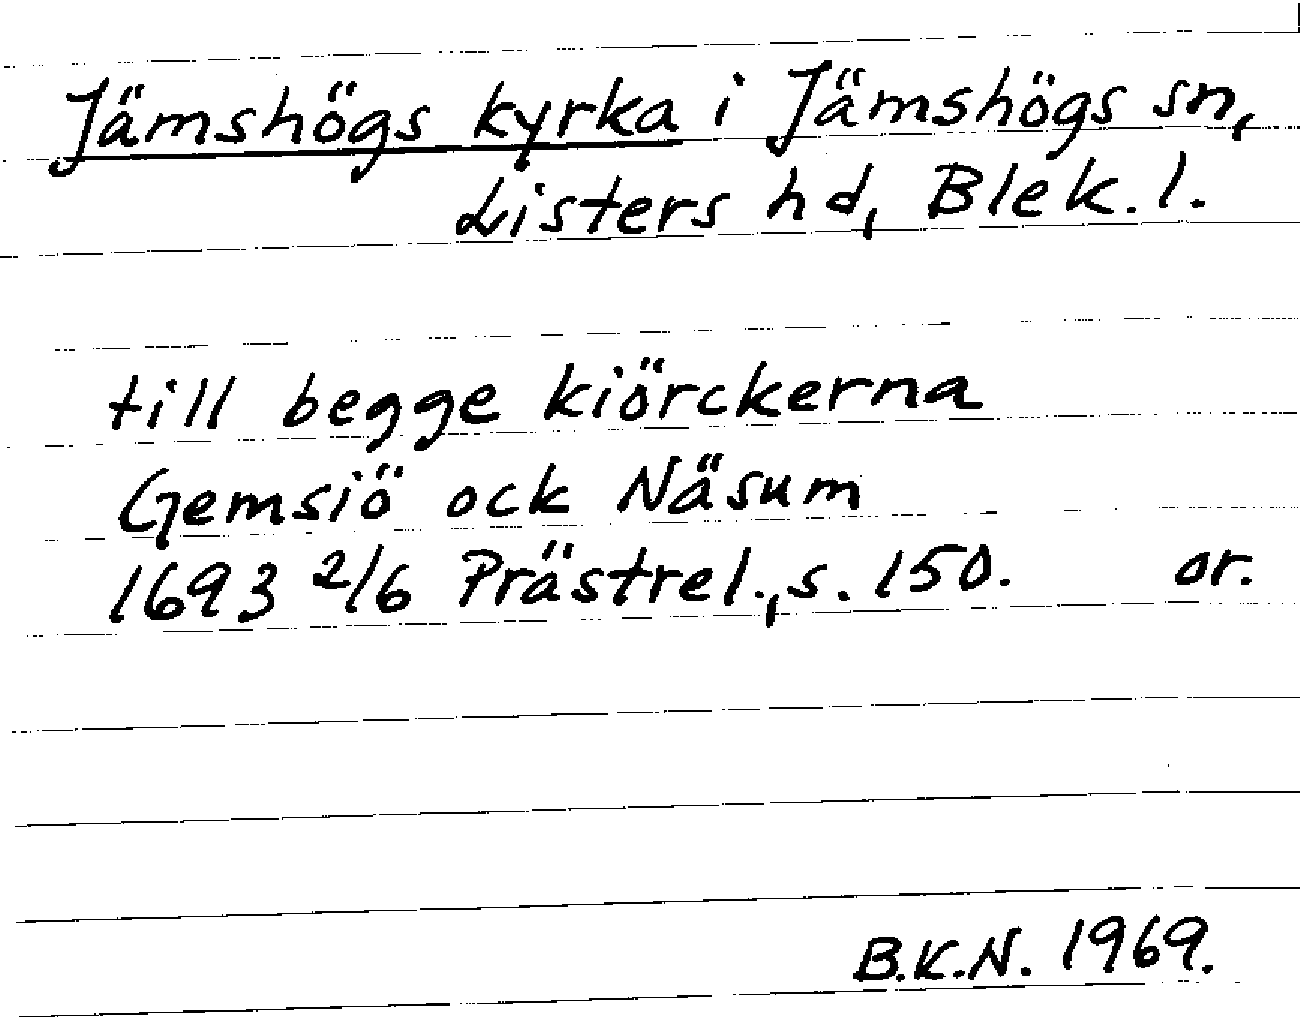 Jämshögs kyrka i Jämshögs sn,
Listers hd, Blek. l.
till begge kiörckerna
Gemsiö ock Näsum
1693 2/6 Prästrel., s. 150. or.
B.K.N. 1969.